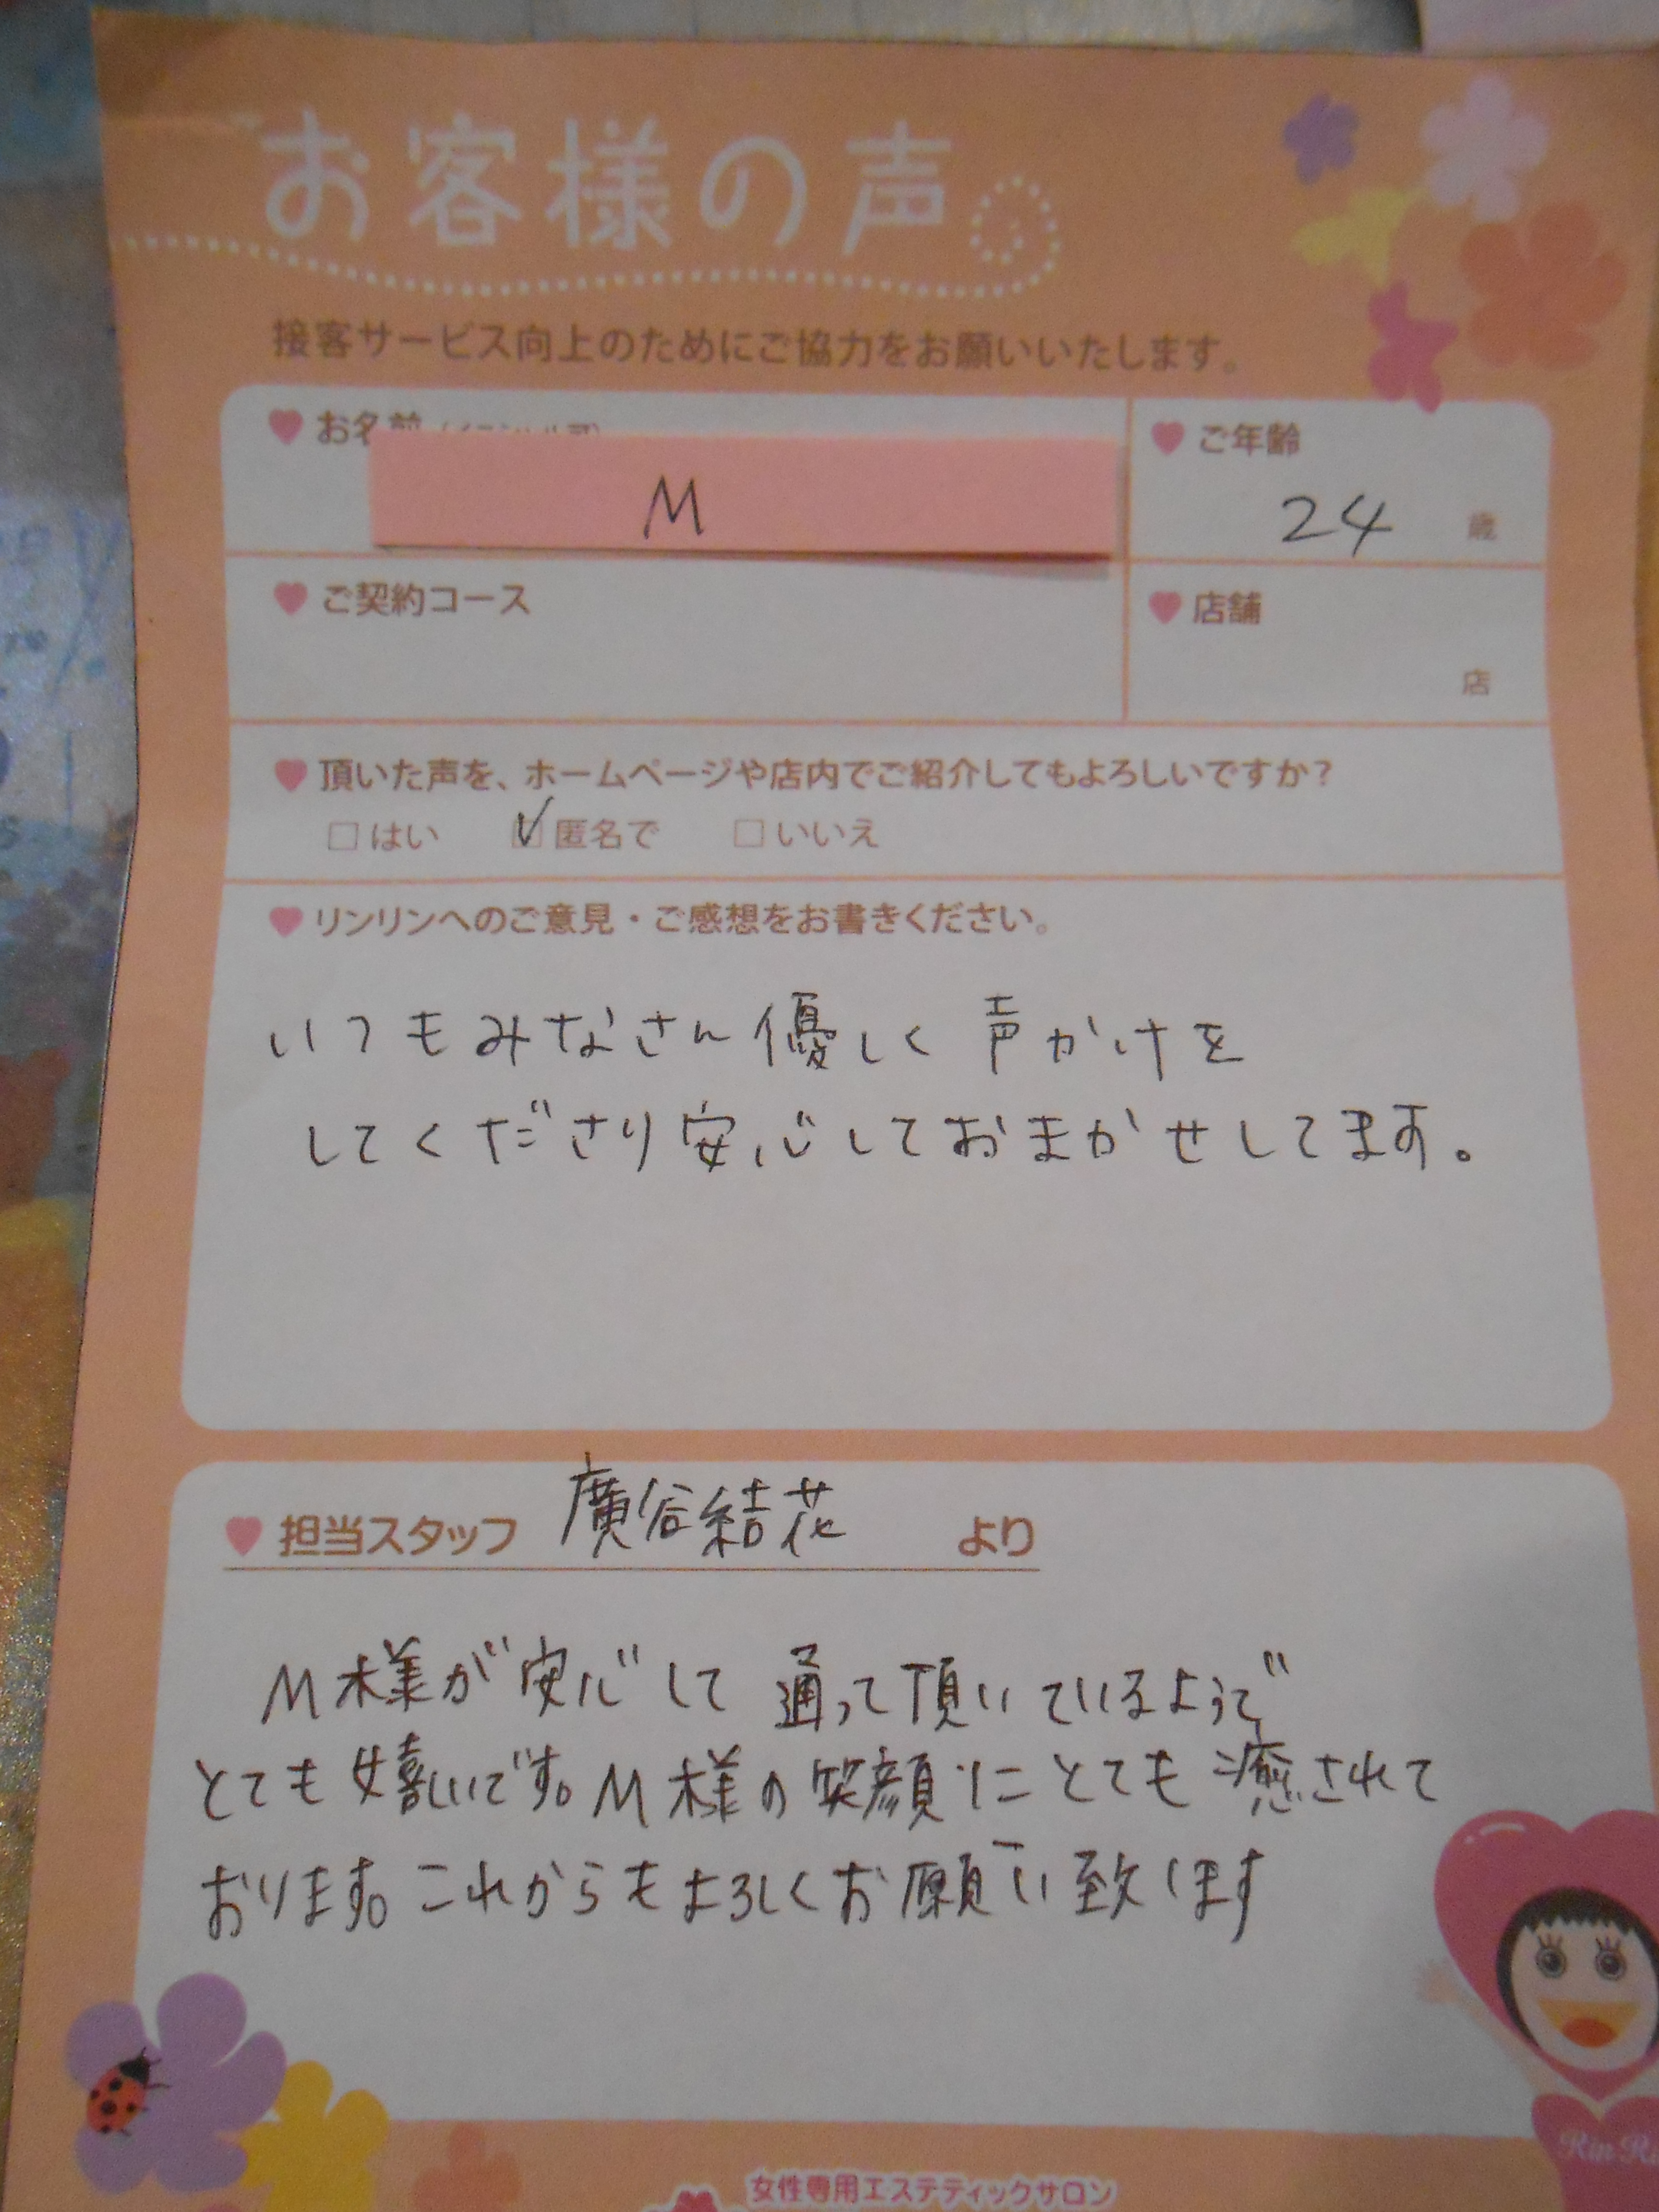 お客様の声
接客サービス向上のためにご協力をお願いいたします。
お名前
M
ご年齢
24 歳
ご契約コース
店舗
店
頂いた声を、ホームページや店内でご紹介してもよろしいですか?
□はい ☑匿名で □いいえ
リンリンへのご意見・ご感想をお書きください。
いつもみなさん優しく声かけを
してくださり安心しておまかせしてます。
担当スタッフ 廣谷結花 より
M様が安心して通って頂いているようで
とても嬉しいです。M様の笑顔にとても癒されて
おります。これからもよろしくお願い致します
Rin Ri
女性専用エステティックサロン